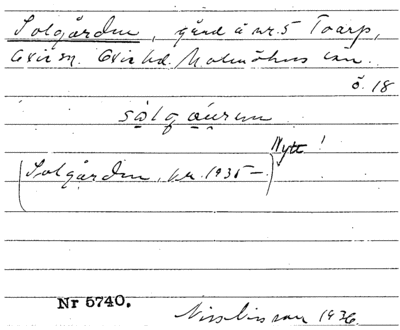 Solgården, gård å nr. 5 Toarp,
Oxie sn. Oxie hd. Malmöhus län.
ö. 18
sòlgǫ́uren
Nytt!
(Solgården, kr. 1935–)
Nr 5740.
Nils Nilsson 1936.